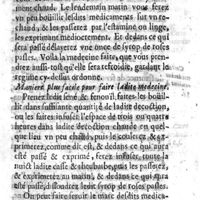 ment chaud. Le lendemain matin vous ferez
vn peu bouillir lesdits medicamens sur vn re-
chaud, & les passerez par l'estamine ou linge,
les exprimant mediocrement. Et dedans ce qui
sera passé délayerez vne once de syrop de roses
passes. Voila la medecine faite, que vous pren-
drez aussi-tost qu'elle sera refroidie, gardant le
regime cy-dessus ordonné.
Maniere plus facile pour faire ladite medecine.
Prenez ledit sené & fenoüil, faites-les boüil-
lir dans suffisante quantité de ladite decoction,
ou les faites infuser l'espace de trois ou quatre
heures dans ladite decoction chaude en quel-
que lieu vn peu chaud, puis le coulerez & ex-
primerez, comme dit est, & dedans ce qui aura
esté passé & exprimé, ferez infuser, toute la
nuit ladite casse & rheubarbe, puis les passerez
& exprimerez, & dedans ce qui aura esté
passé, dissoudrez ledit syrop de roses passes.
On peut faire seruir le marc desdits medica-